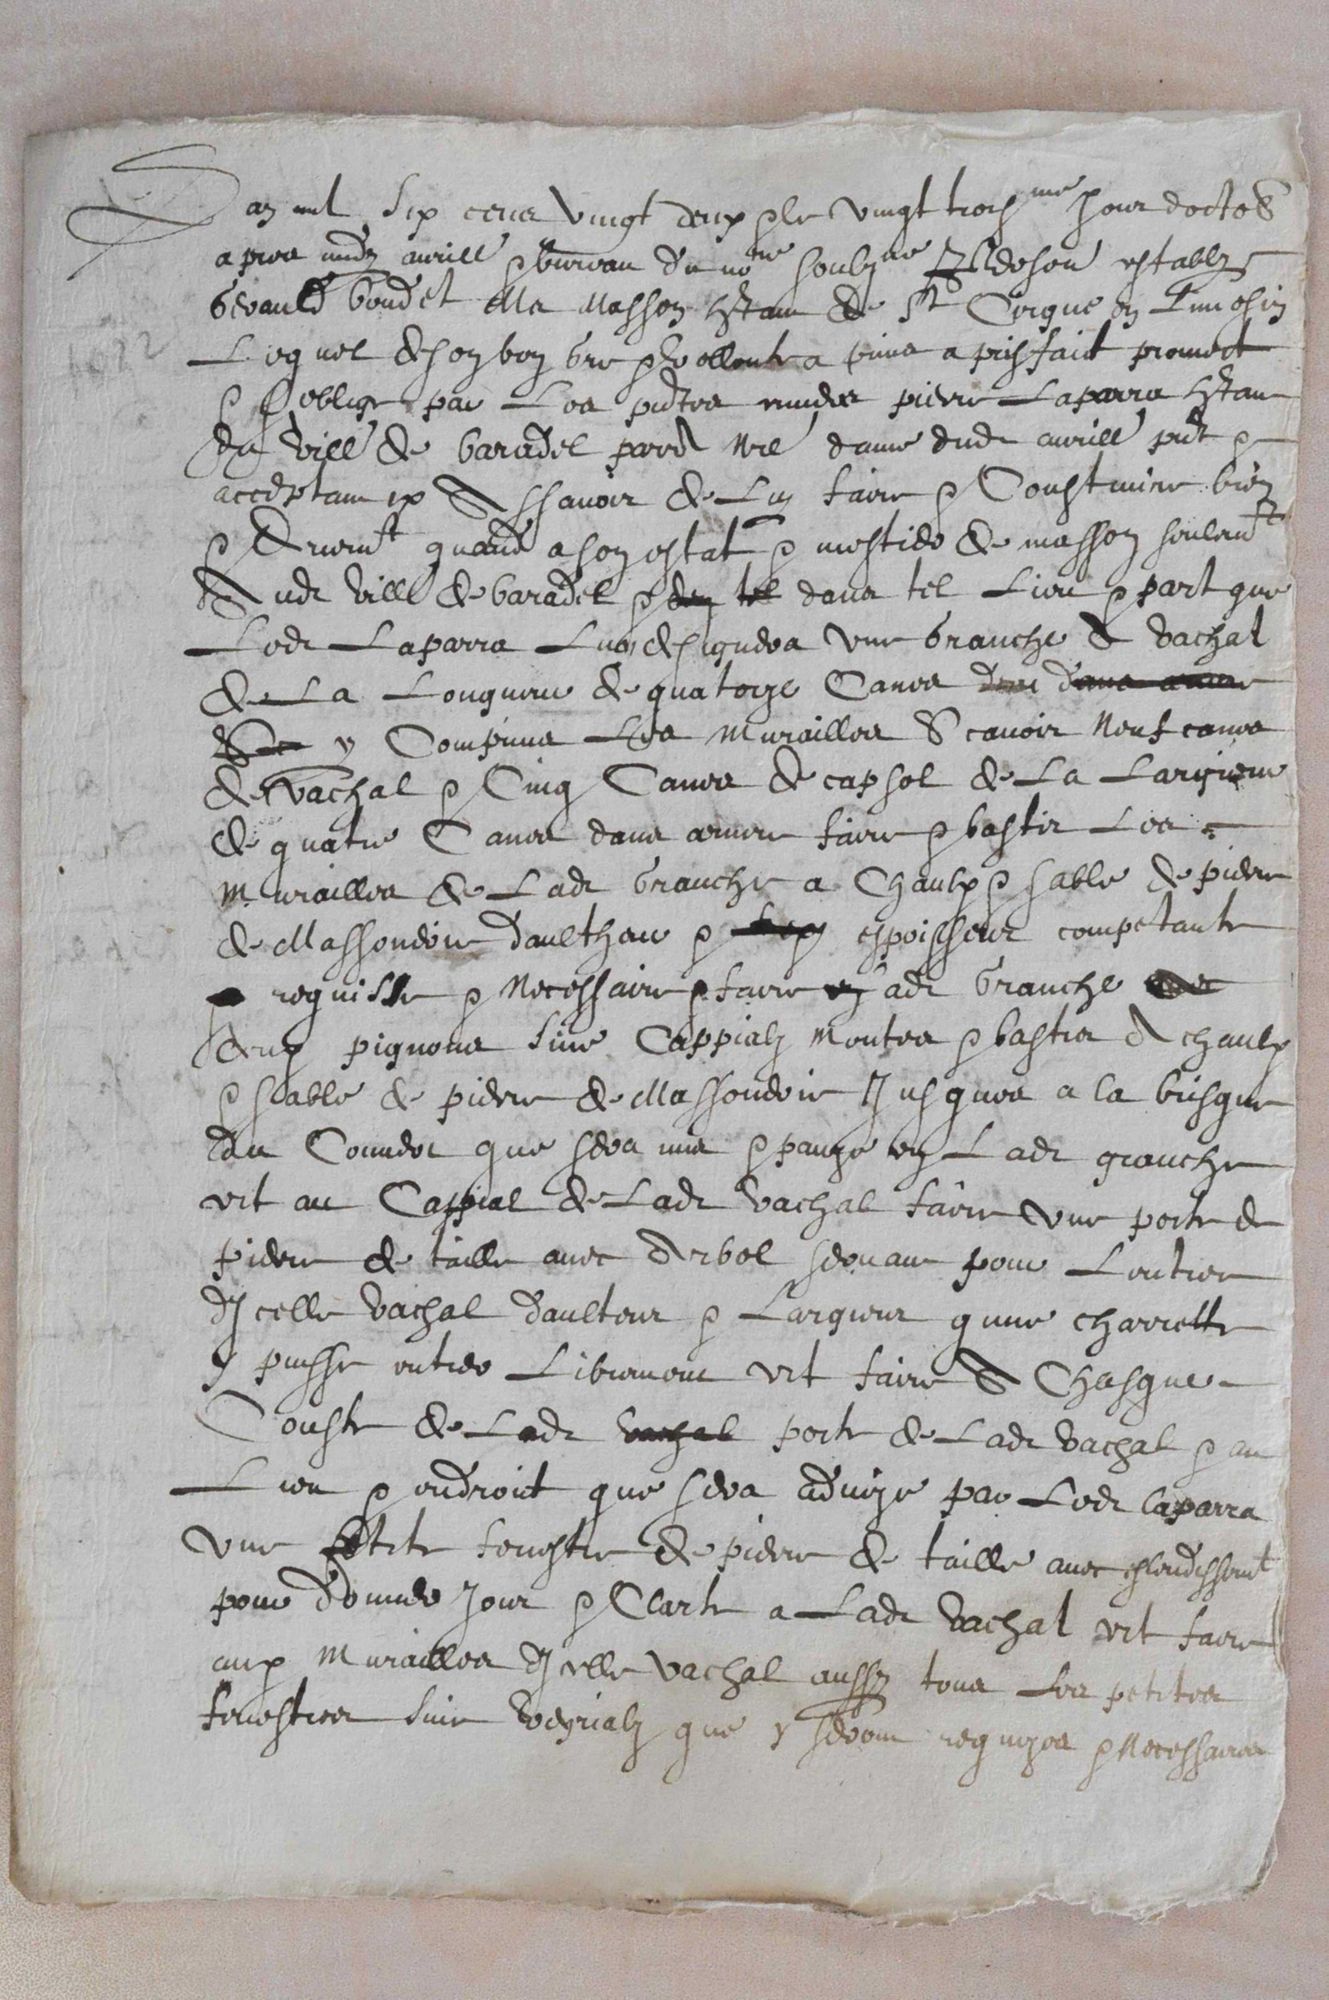 L'an mil six cens vingt deux & le vingt trois me jour doctob
apres midy aurill & bureau du no re soubz ne
Gerauld boudet Me Masson htant de St Cirgue en Limosin
Lequel de son bon gre & vollonte a prins a prisfaict promect
& soblige par Les pntes pierre Laparra htant
du vill de baradel parr Nre dame dudt aurill pnt &
acceptant de Luy faire & Construire bien
& deuemt quand a son estat & mestier de masson seulemt
Audt vill de baradel & dans tel Lieu & part que
Ledt Laparra Luy designera une Granche & vachal
de La Longueur de quatorze Canes
y Comprins Les Murailles Scavoir Neuf canes
de vachal & Cinq Canes de capsol de La Largieur
de quatre Canes dans faire & bastir Les
Murailles de Ladt Granche a Chaulx & sable de pierre
de Massonerie daulthur & espoisseur competante
requisse & Necessaire & faire en adt Granche
deux pignons sive Cappialz Montes & bastis A chaulx
& sable de pierre de Massonerie Jusques a la brisque
du Couvert que sera mis & pause en Ladt granche
Et au Cappial de Ladt vachal faire une porte de
pierre de taille avec Arbol servant pour Lentree
dIcelle vachal daulteur & Largieur quune charrette
y puisse entrer Librement Et faire A Chasque
Couste de Ladt porte de Ladt vachal & au
Lieu & endroict que sera advize par Ledt Laparra
une petite fenestre de pierre de taille avec
pour donner Jour & Clarte a Ladt vachal Et faire
aux Murailles dIcelle vachal aussy tous Les petites
fenestres sive que y seront requizes & Necessaires